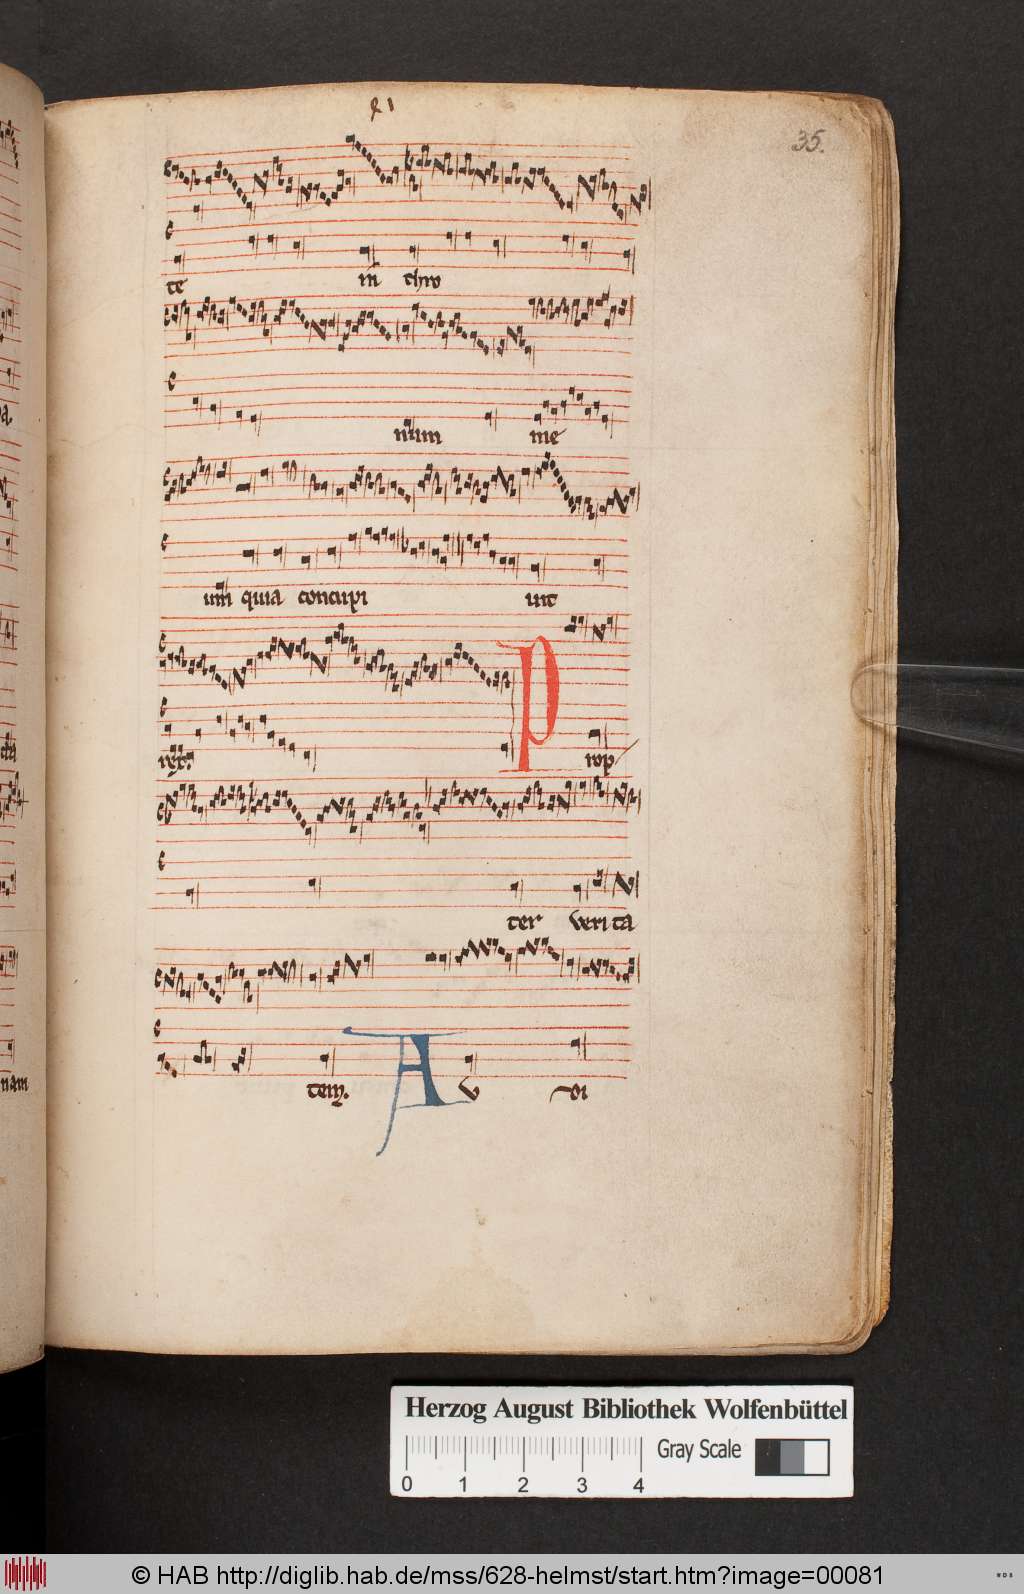 35.
te in thro
num me
um quia concupi uit
rex. P rop
ter veri ta
tem. A v di
Herzog August Bibliothek Wolfenbüttel
Gray Scale
0 1 2 3 4
© HAB http://diglib.hab.de/mss/628-helmst/start.htm?image=00081